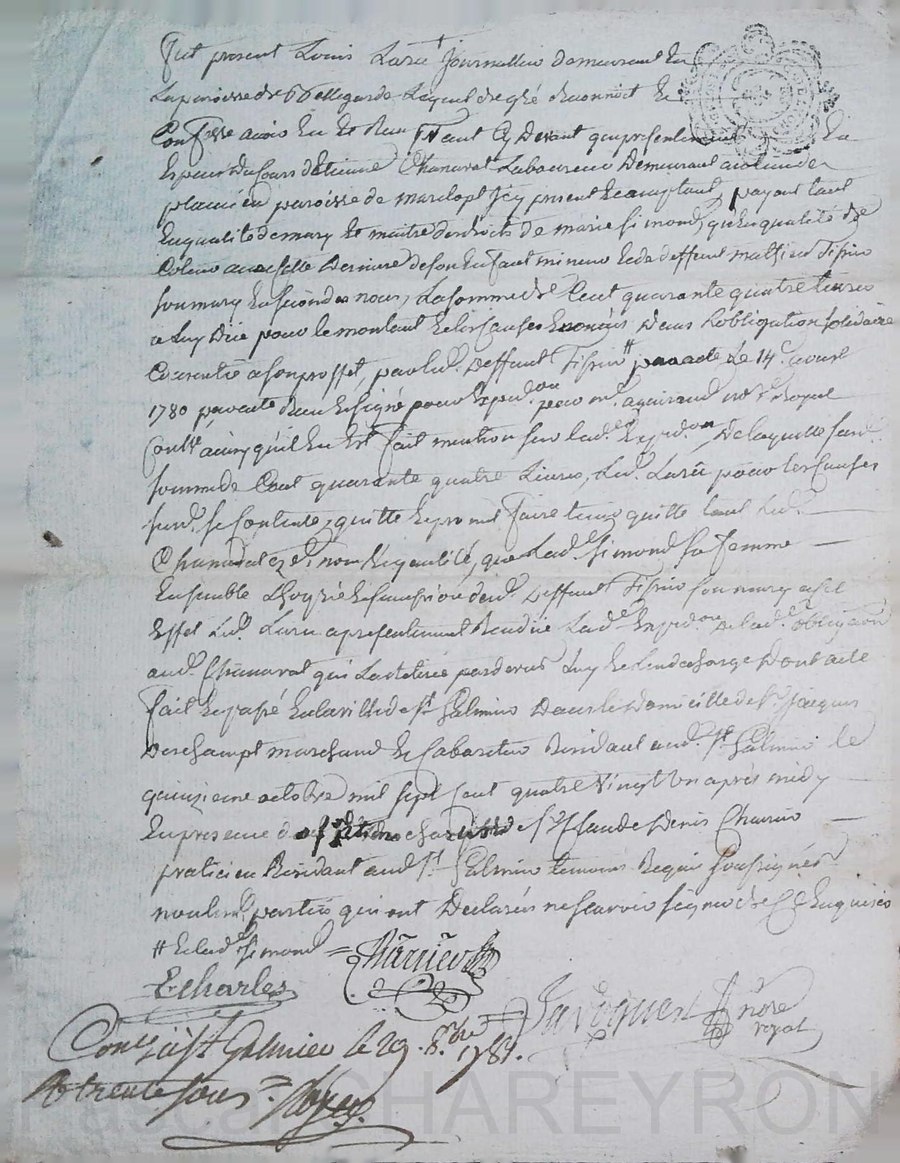 fut present Louis Larue journallier demeurant en
La paroisse de Bellegarde Lequel de gré Reconnoit Et
Confesse avoir Eu Et Reçu tant Cy devant que presentement
Especes du Cours d'Etienne Chanavat Laboureur Demeurant au
paroisse de marclopt icy present Et acceptant, payant tant
En qualité de mary Et maitre des droits de marie Simond, qu'en qualité de
de son Enfant mineur Et de deffunt mathieu Tissier
son mary En secondes noces, La somme de Cent quarante quatre Livres
a Luy Düe pour le montant Et les Causes Enoncés Dans L'obligation solidaire
Consentie a son proffit, par led. Deffunt Tissier # par acte Le 14e avril
1780 par acte Reçu Et signé pour Expedon par me aguiraud nore Royal
Contlé ainsy qu'il En Est fait mention sur lade Expedon De laquelle sand.
somme de Cent quarante quatre Livres, Led. Larue pour les Causes
susd. se Contente, quitte Et promet faire tenir quitte tant Led.
Chanavat ez d. noms Et qualité, que Lad. Simond sa femme
Ensemble L'hoyrie Et succession dud. Deffunt Tissier son mary a cet
Effet Led. Larue a presentement Rendüe Lade Expedon de lade obligaon
aud. Chanavat qui L'a retirée par devers Luy Et L'en decharge Dont acte
fait Et passé En la ville de St Galmier Dans le Domicille de sr Jacques
Deschampt marchand Et Cabaretier Residant aud. St Galmier le
quinzieme octobre mil sept Cent quatre vingt un après midy
En presence de sr Etienne Charles Et de sr Claude Denis Charvier
praticien Residant aud. St Galmier temoins Requis soussignés
non les parties qui ont Declarés ne scavoir signer de Ce Enquises
# Et lade Simond =
Echarles
nore
royal
Conlé à St Galmier le 29 8bre 1781.
R trente sous =
Pascal CHAREYRON